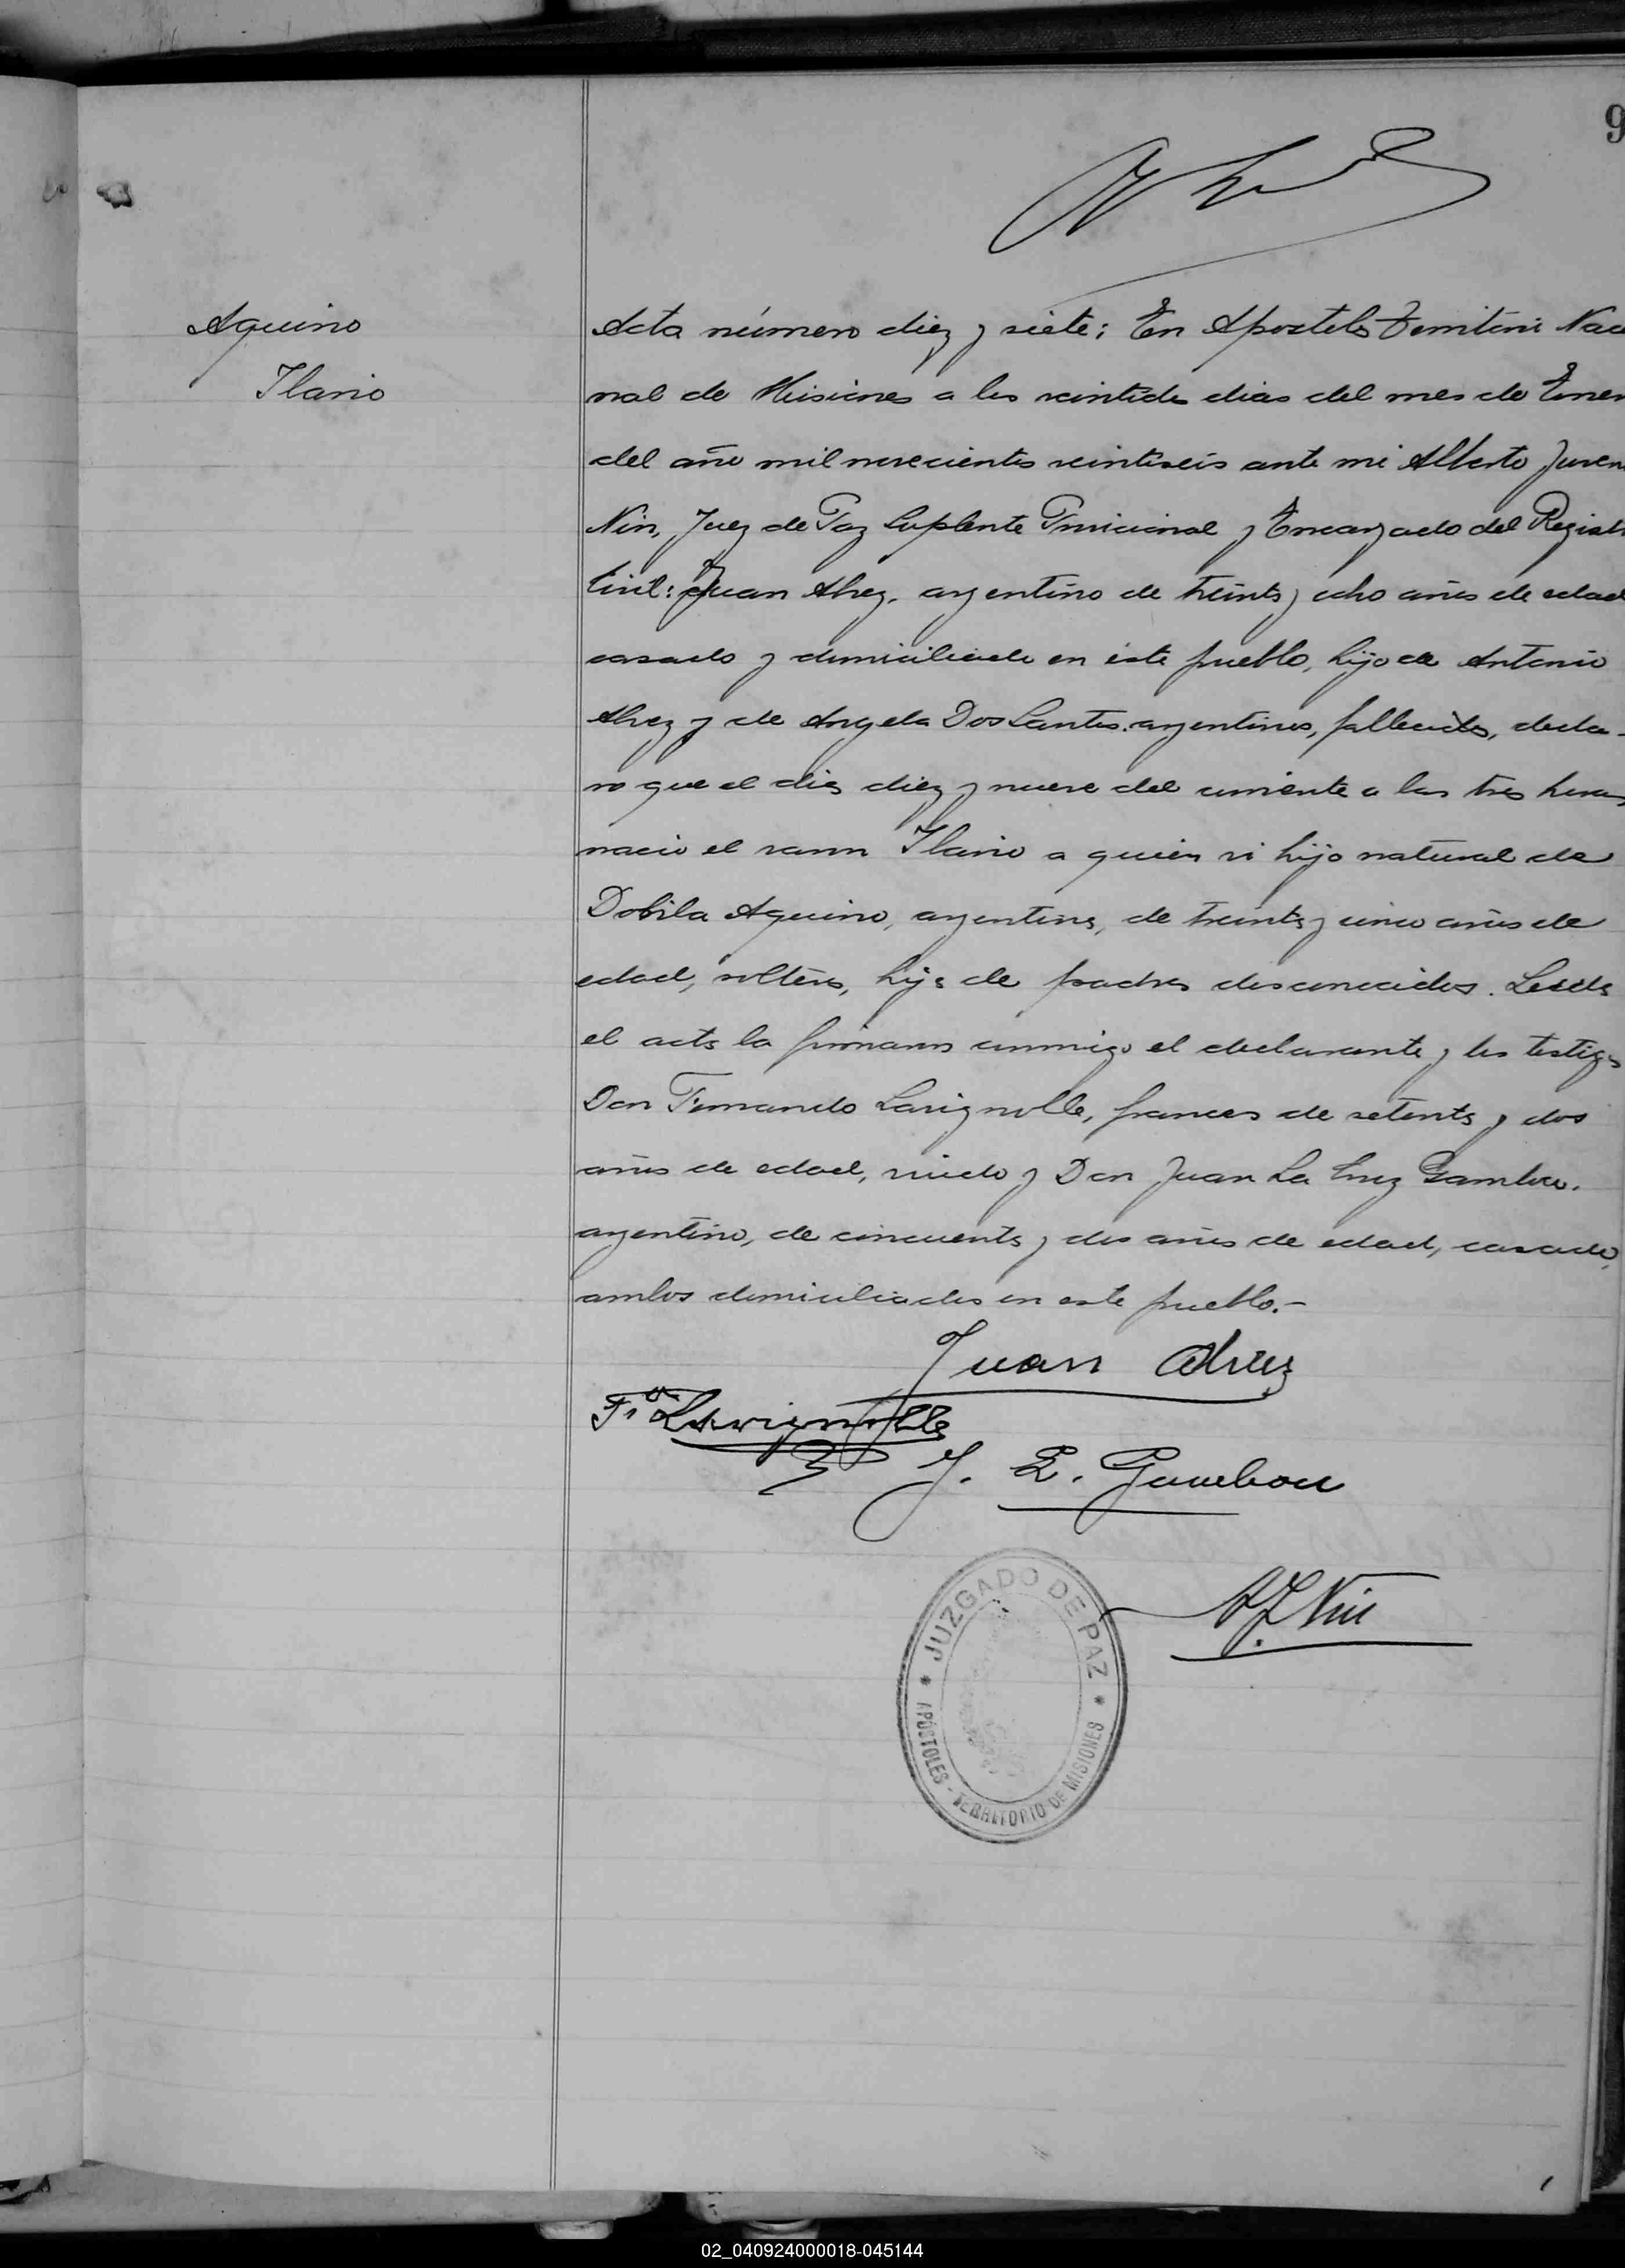 9
Aquino
Ilario
Acta número diez y siete: En Apostoles Territorio Nacio
nal de Misiones a los veintidos dias del mes de Enero
del año mil novecientos veintiseis ante mi Alberto Juven
Nin, Juez de Paz Suplente Provicional y Encargado del Registro
Civil: Juan Alvez, argentino de treinta y ocho años de edad
casado y domiciliado en éste pueblo, hijo de Antonio
Alvez y de Angela Dos Santos. argentinos, fallecidos, decla-
ro que el dia diez y nueve del corriente a las tres horas
nacio el varon Ilario a quien vi hijo natural de
Dobila Aquino, argentina, de treinta y cinco años de
edad, soltera, hija de padres desconocidos. Leida
el acta la firmaron conmigo el declarante y los testigos
Don Fernando Lavignolle, frances de setenta y dos
años de edad, viudo y Don Juan La Cruz Gambou.
argentino, de cincuenta y dos años de edad, casado,
ambos domiciliados en este pueblo.-
Juan Alvez
F. Lavignolle
J. L. Gambou
A J Nin
JUZGADO DE PAZ
APÓSTOLES - TERRITORIO DE MISIONES
02_040924000018-045144